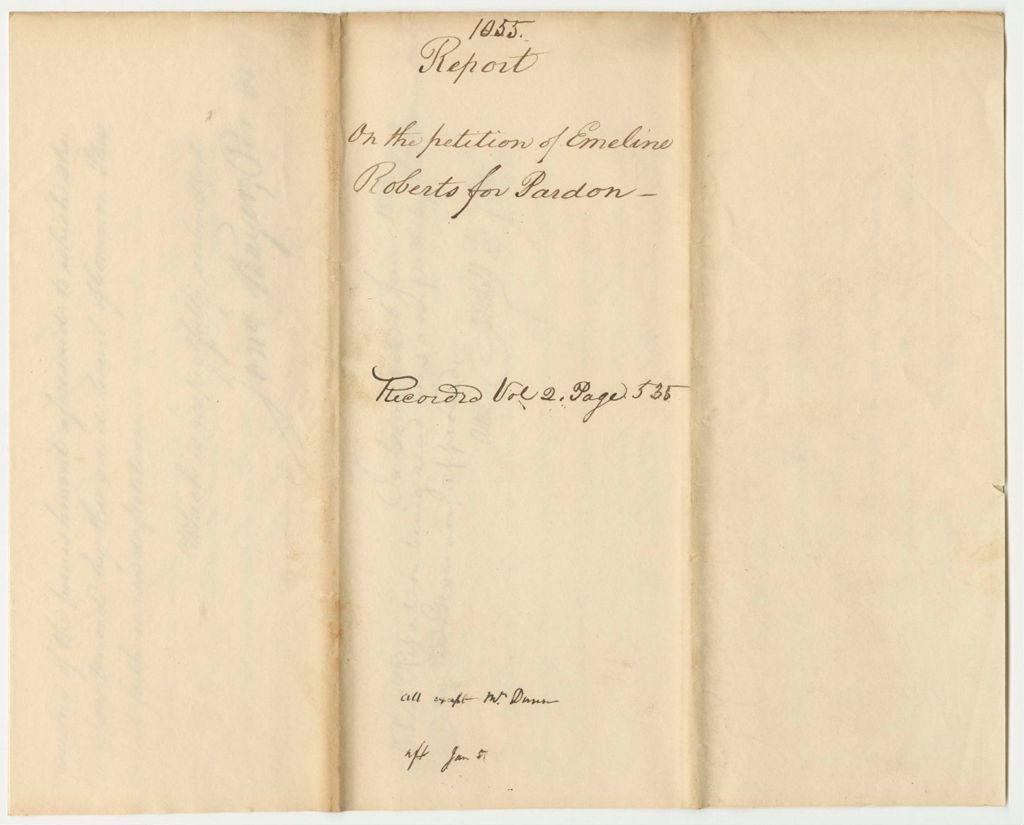 1055.
Report
On the petition of Emeline
Roberts for Pardon –
Recorded Vol 2. Page 535
all except Mr. Dunn
aft Jan 5.